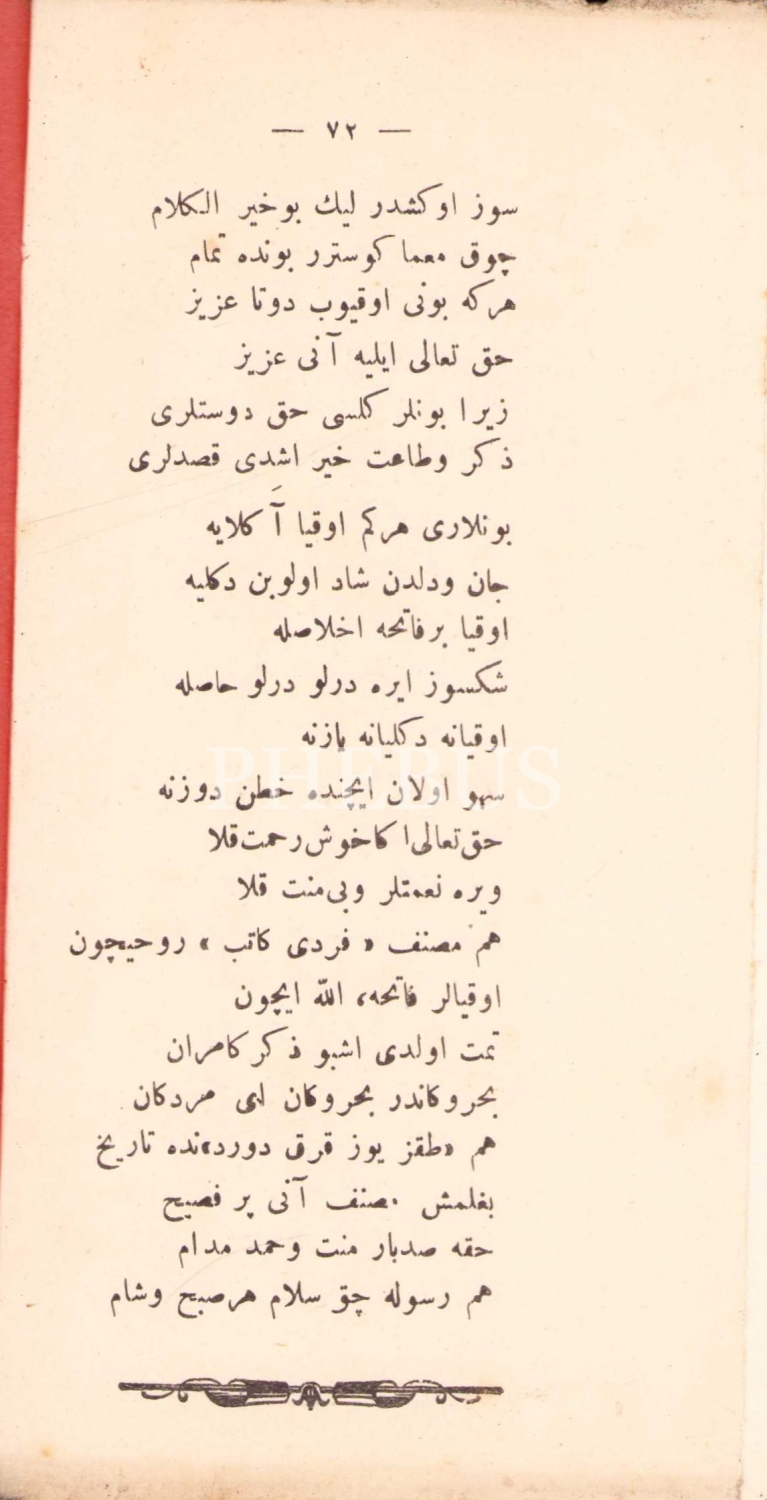 — ٧٢ —
سوز اوكشدر ليك بوخير الكلام
چوق معما كوسترر بونده تمام
هركه بونى اوقيوب دوتا عزيز
حق تعالى ايليه آنى عزيز
زيرا بونلر كلسى حق دوستلرى
ذكر وطاعت خير اشدى قصدلرى
بونلارى هركم اوقيا آكلايه
جان ودلدن شاد اولوبن دكليه
اوقيا برفاتحه اخلاصله
شكسوز ايره درلو درلو حاصله
اوقيانه دكليانه يازنه
PHEBUS
سهو اولان ايچنده خطن دوزنه
حق تعالى اكا خوش رحمت قلا
ويره نعمتلر وبى منت قلا
هم مصنف « فردى كاتب » روحيچون
اوقيالر فاتحه، الله ايچون
تمت اولدى اشبو ذكر كامران
بحر وكاندر بحر وكان اى مردكان
هم «طقز يوز قرق دورد»نده تاريخ
بغلمش مصنف آنى پر فصيح
حقه صدبار منت وحمد مدام
هم رسوله چق سلام هرصبح وشام